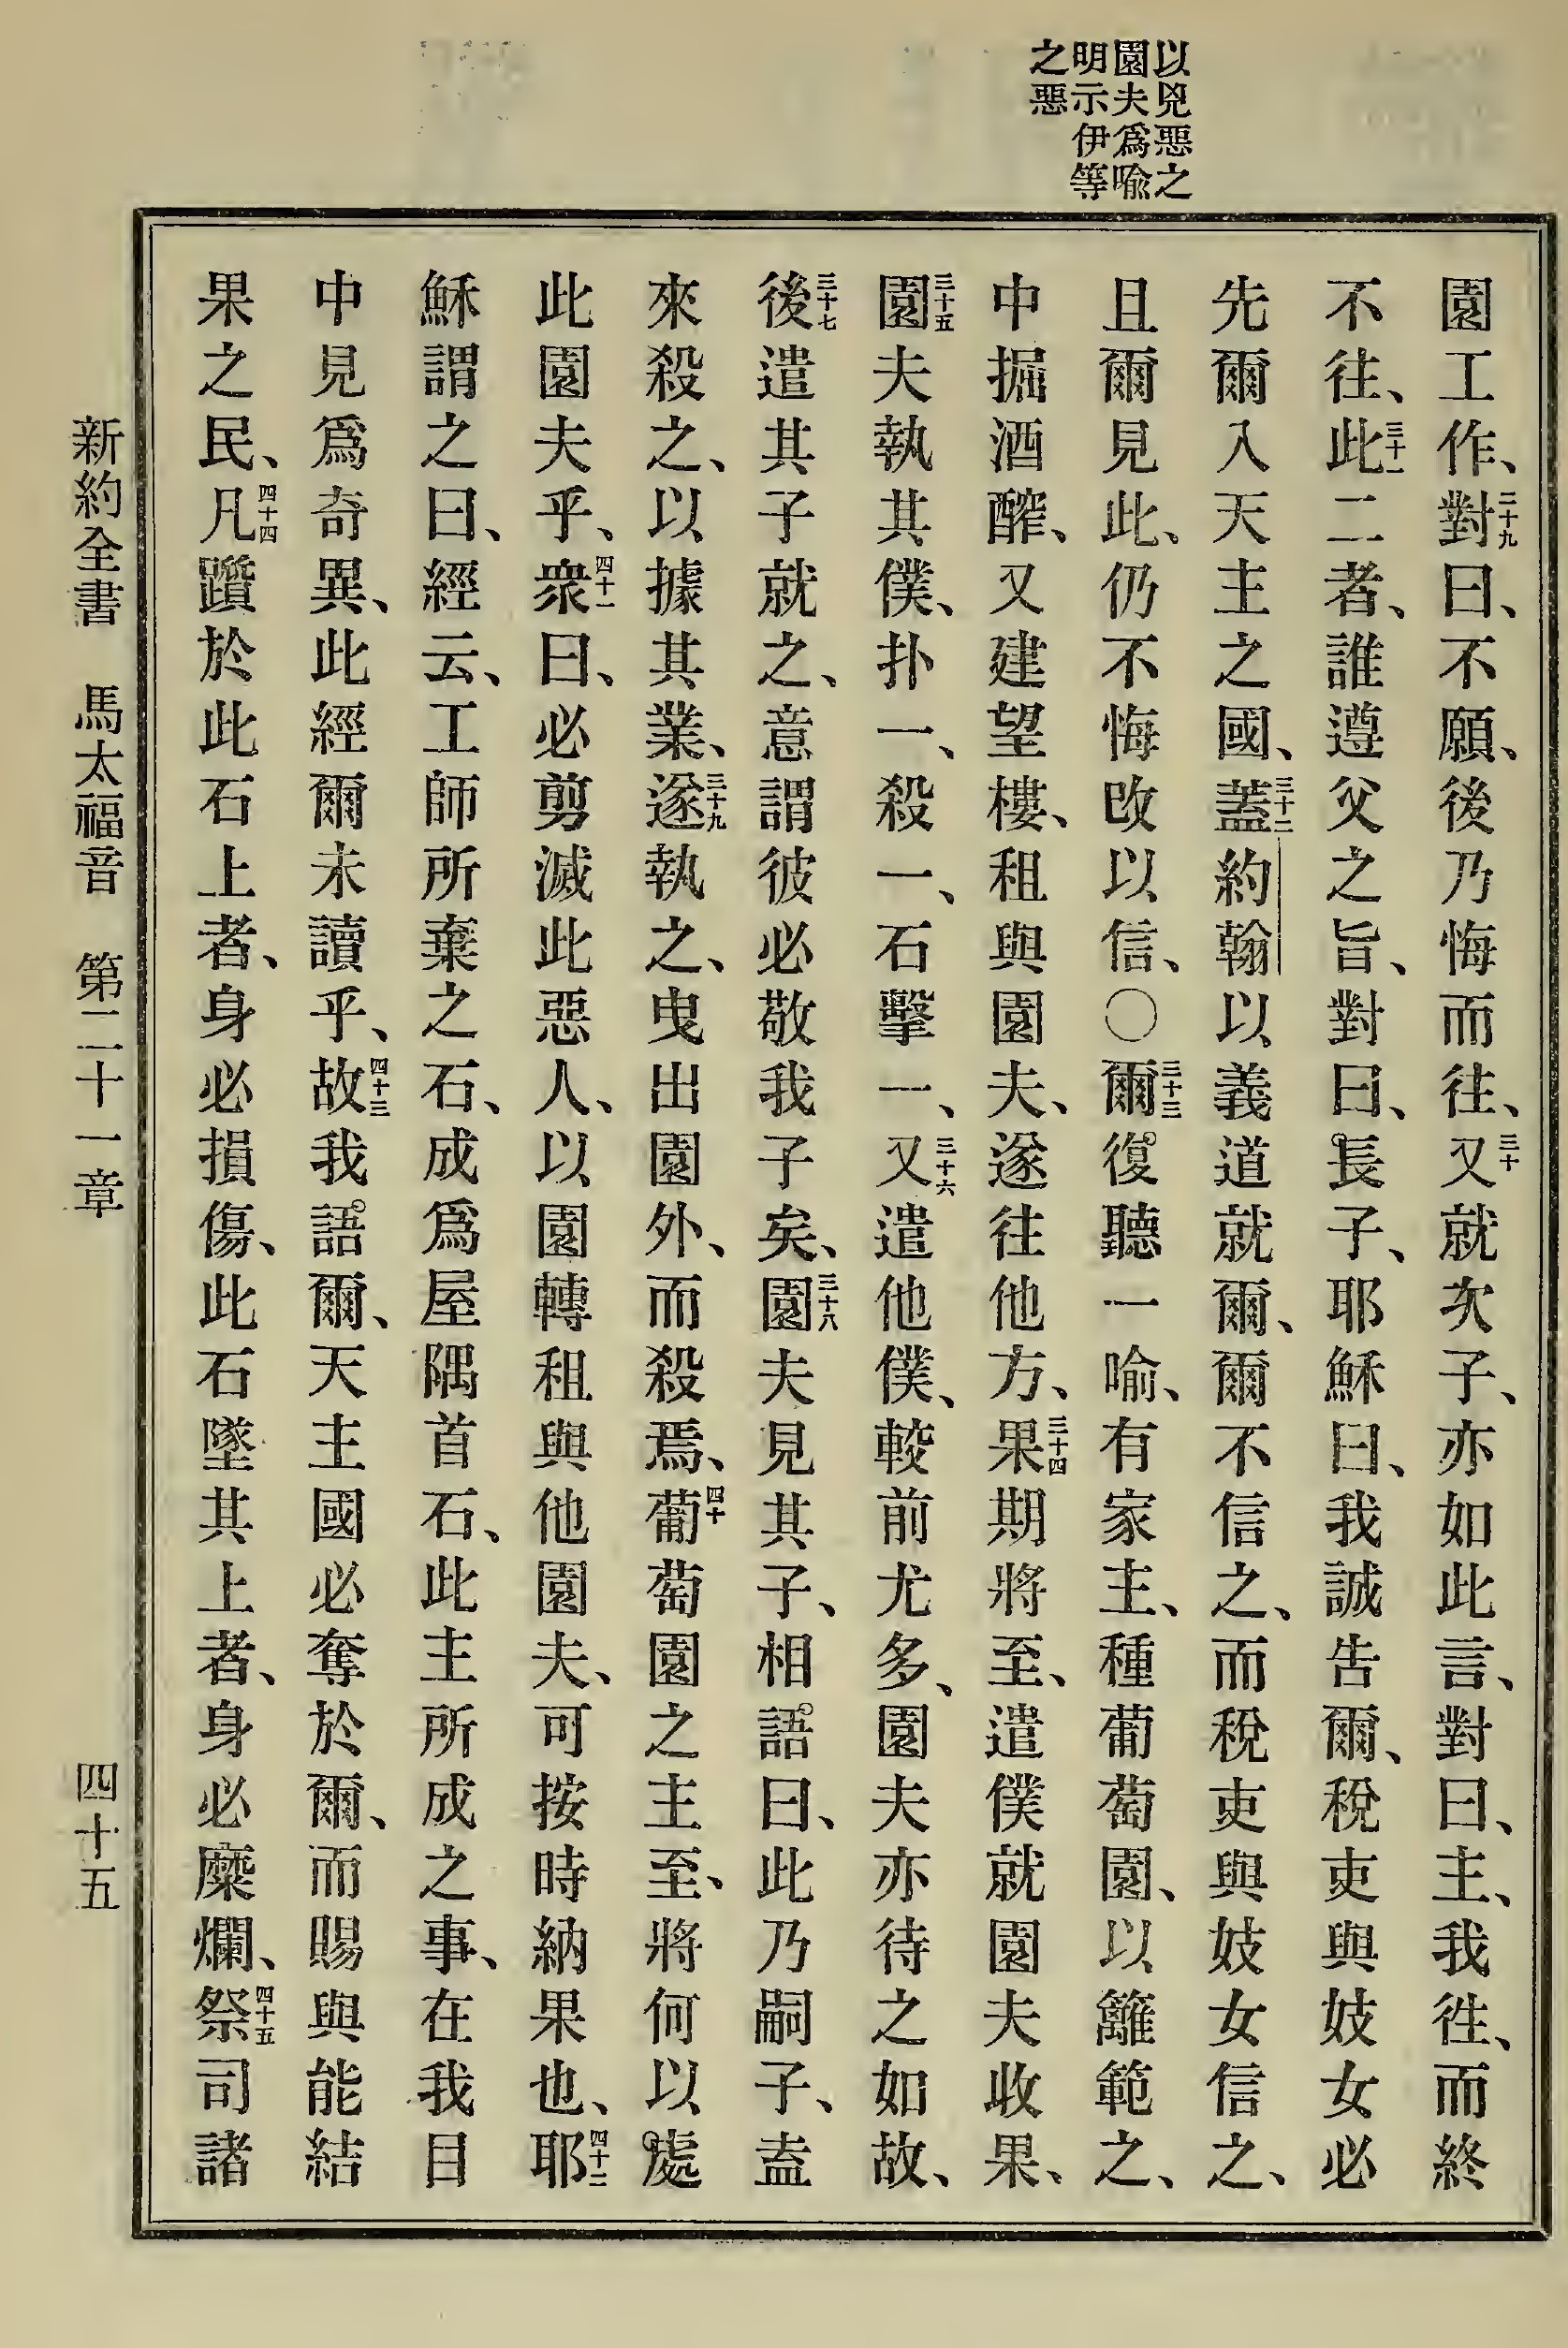 以兇惡之
園夫爲喻
明示伊等
之惡
園工作、二十九對曰、不願、後乃悔而往、三十又就次子、亦如此言、對曰、主、我徃、而終
不往、三十一此二者、誰遵父之旨、對曰、長子、耶穌曰、我誠告爾、稅吏與妓女必
先爾入天主之國、三十二蓋約翰以義道就爾、爾不信之、而稅吏與妓女信之、
且爾見此、仍不悔改以信、〇三十三爾復聽一喻、有家主、種葡萄園、以籬範之、
中掘酒醡、又建望樓、租與園夫、遂往他方、三十四果期將至、遣僕就園夫收果、
三十五園夫執其僕、扑一、殺一、石擊一、三十六又遣他僕、較前尤多、園夫亦待之如故、
三十七後遣其子就之、意謂彼必敬我子矣、三十八園夫見其子、相語曰、此乃嗣子、盍
來殺之、以據其業、三十九遂執之、曳出園外、而殺焉、四十葡萄園之主至、將何以處
此園夫乎、四十一衆曰、必剪滅此惡人、以園轉租與他園夫、可按時納果也、四十二耶
穌謂之曰、經云、工師所棄之石、成爲屋隅首石、此主所成之事、在我目
中見爲奇異、此經爾未讀乎、四十三故我語爾、天主國必奪於爾、而賜與能結
果之民、四十四凡躓於此石上者、身必損傷、此石墜其上者、身必糜爛、四十五祭司諸
新約全書 馬太福音 第二十一章 四十五